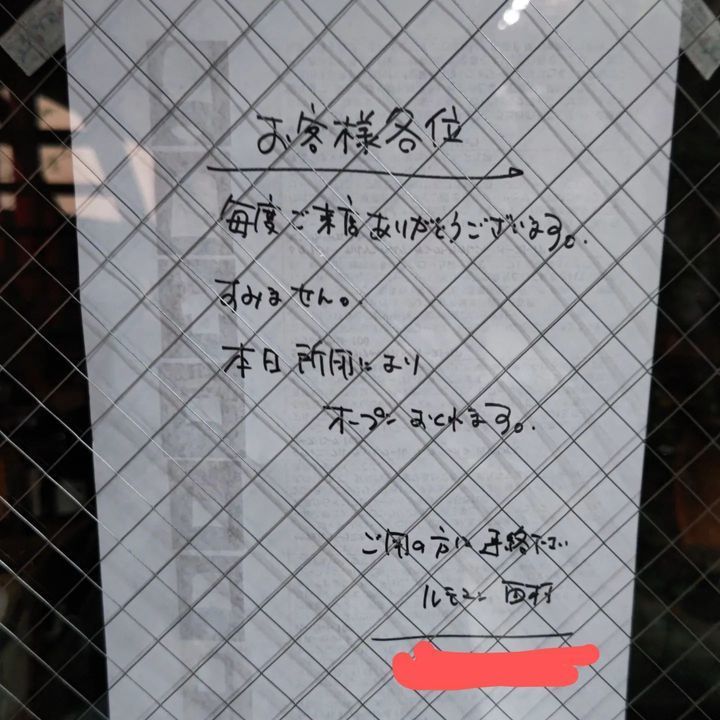 お客様各位
毎度ご来店ありがとうございます。
すみません。
本日所用により
オープンおくれます。
ご用の方は連絡下さい
ルモン 西村